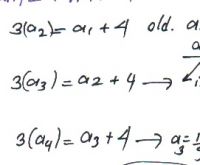 3(a₂) = a₁ + 4 old. a
3(a₃) = a2 + 4 →
3(a₄) = a₃ + 4 → a₃ =